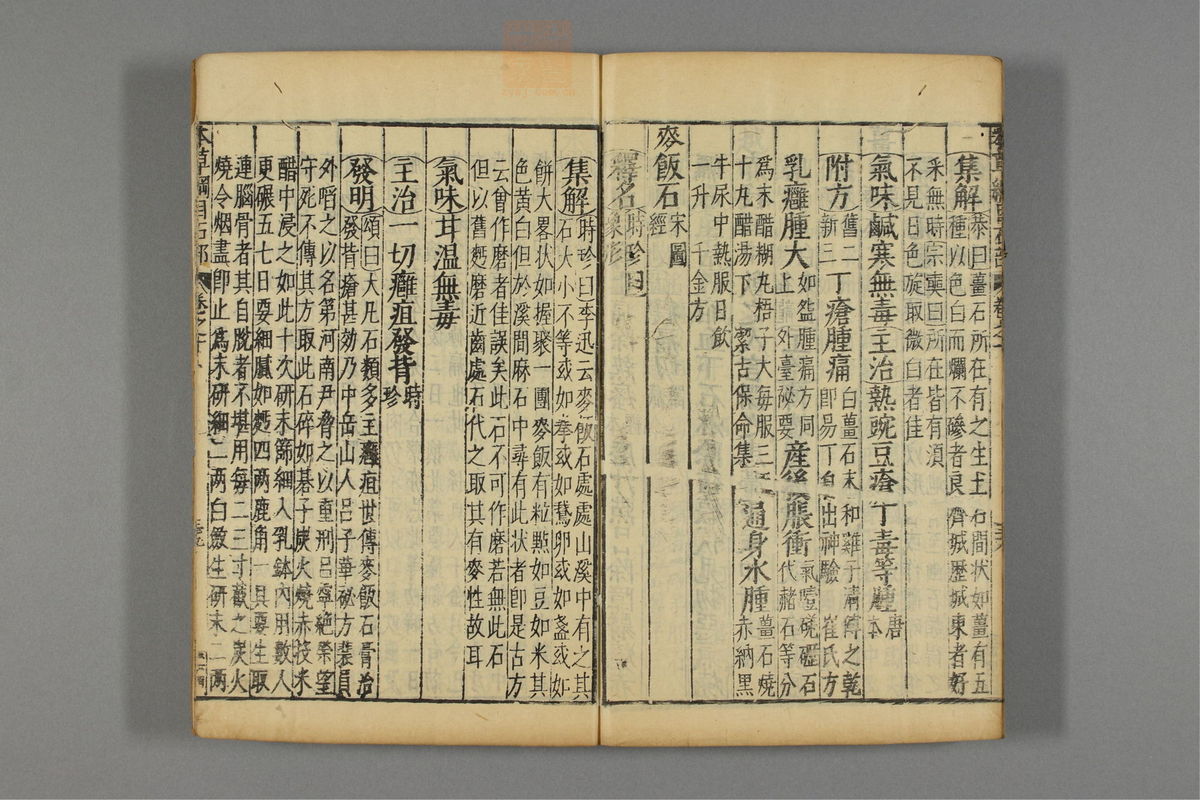 集解恭曰薑石所在有之生土石間狀如薑有五
種以色白而爛不磣者良齊城歷城東者好
采無時宗奭曰所在皆有須
不見日色旋取微白者佳
氣味鹹寒無毒主治熱豌豆瘡丁毒等腫唐
本
附方舊二
新三丁瘡腫痛白薑石末和雞子清傅之乾
即易丁自出神驗崔氏方
乳癰腫大如盌腫痛方同
上外臺祕要産後脹衝氣噎礜礰石
代赭石等分
爲末醋糊丸梧子大每服三
十丸醋湯下潔古保命集通身水腫薑石燒
赤納黑
牛尿中熱服日飮
一升千金方
麥飯石宋圖
經
釋名時珍曰
象形
集解時珍曰李迅云麥飯石處處山溪中有之其
石大小不等或如拳或如鵞卵或如盞或如
餅大畧狀如握聚一團麥飯有粒㸃如豆如米其
色黄白但於溪間麻石中尋有此状者卽是古方
云曾作磨者佳誤矣此石不可作磨若無此石
但以舊麪磨近齒處石代之取其有麥性故耳
氣味甘温無毒
主治一切癰疽發背時
珍
發明頌曰大凡石類多主癰疽世傳麥飯石膏治
發背瘡甚効乃中岳山人呂子華祕方裴員
外啗之以名第河南尹脅之以重刑呂寧絶榮望
守死不傳其方取此石碎如碁子炭火燒赤投米
醋中浸之如此十次研末篩細入乳鉢內用數人
更碾五七日要細膩如麪四兩鹿角一具要生取
連腦骨者其自脫者不堪用每二三寸截之炭火
燒令烟盡卽止爲末研細二兩白斂生研末二兩
本草綱目石部 卷之十